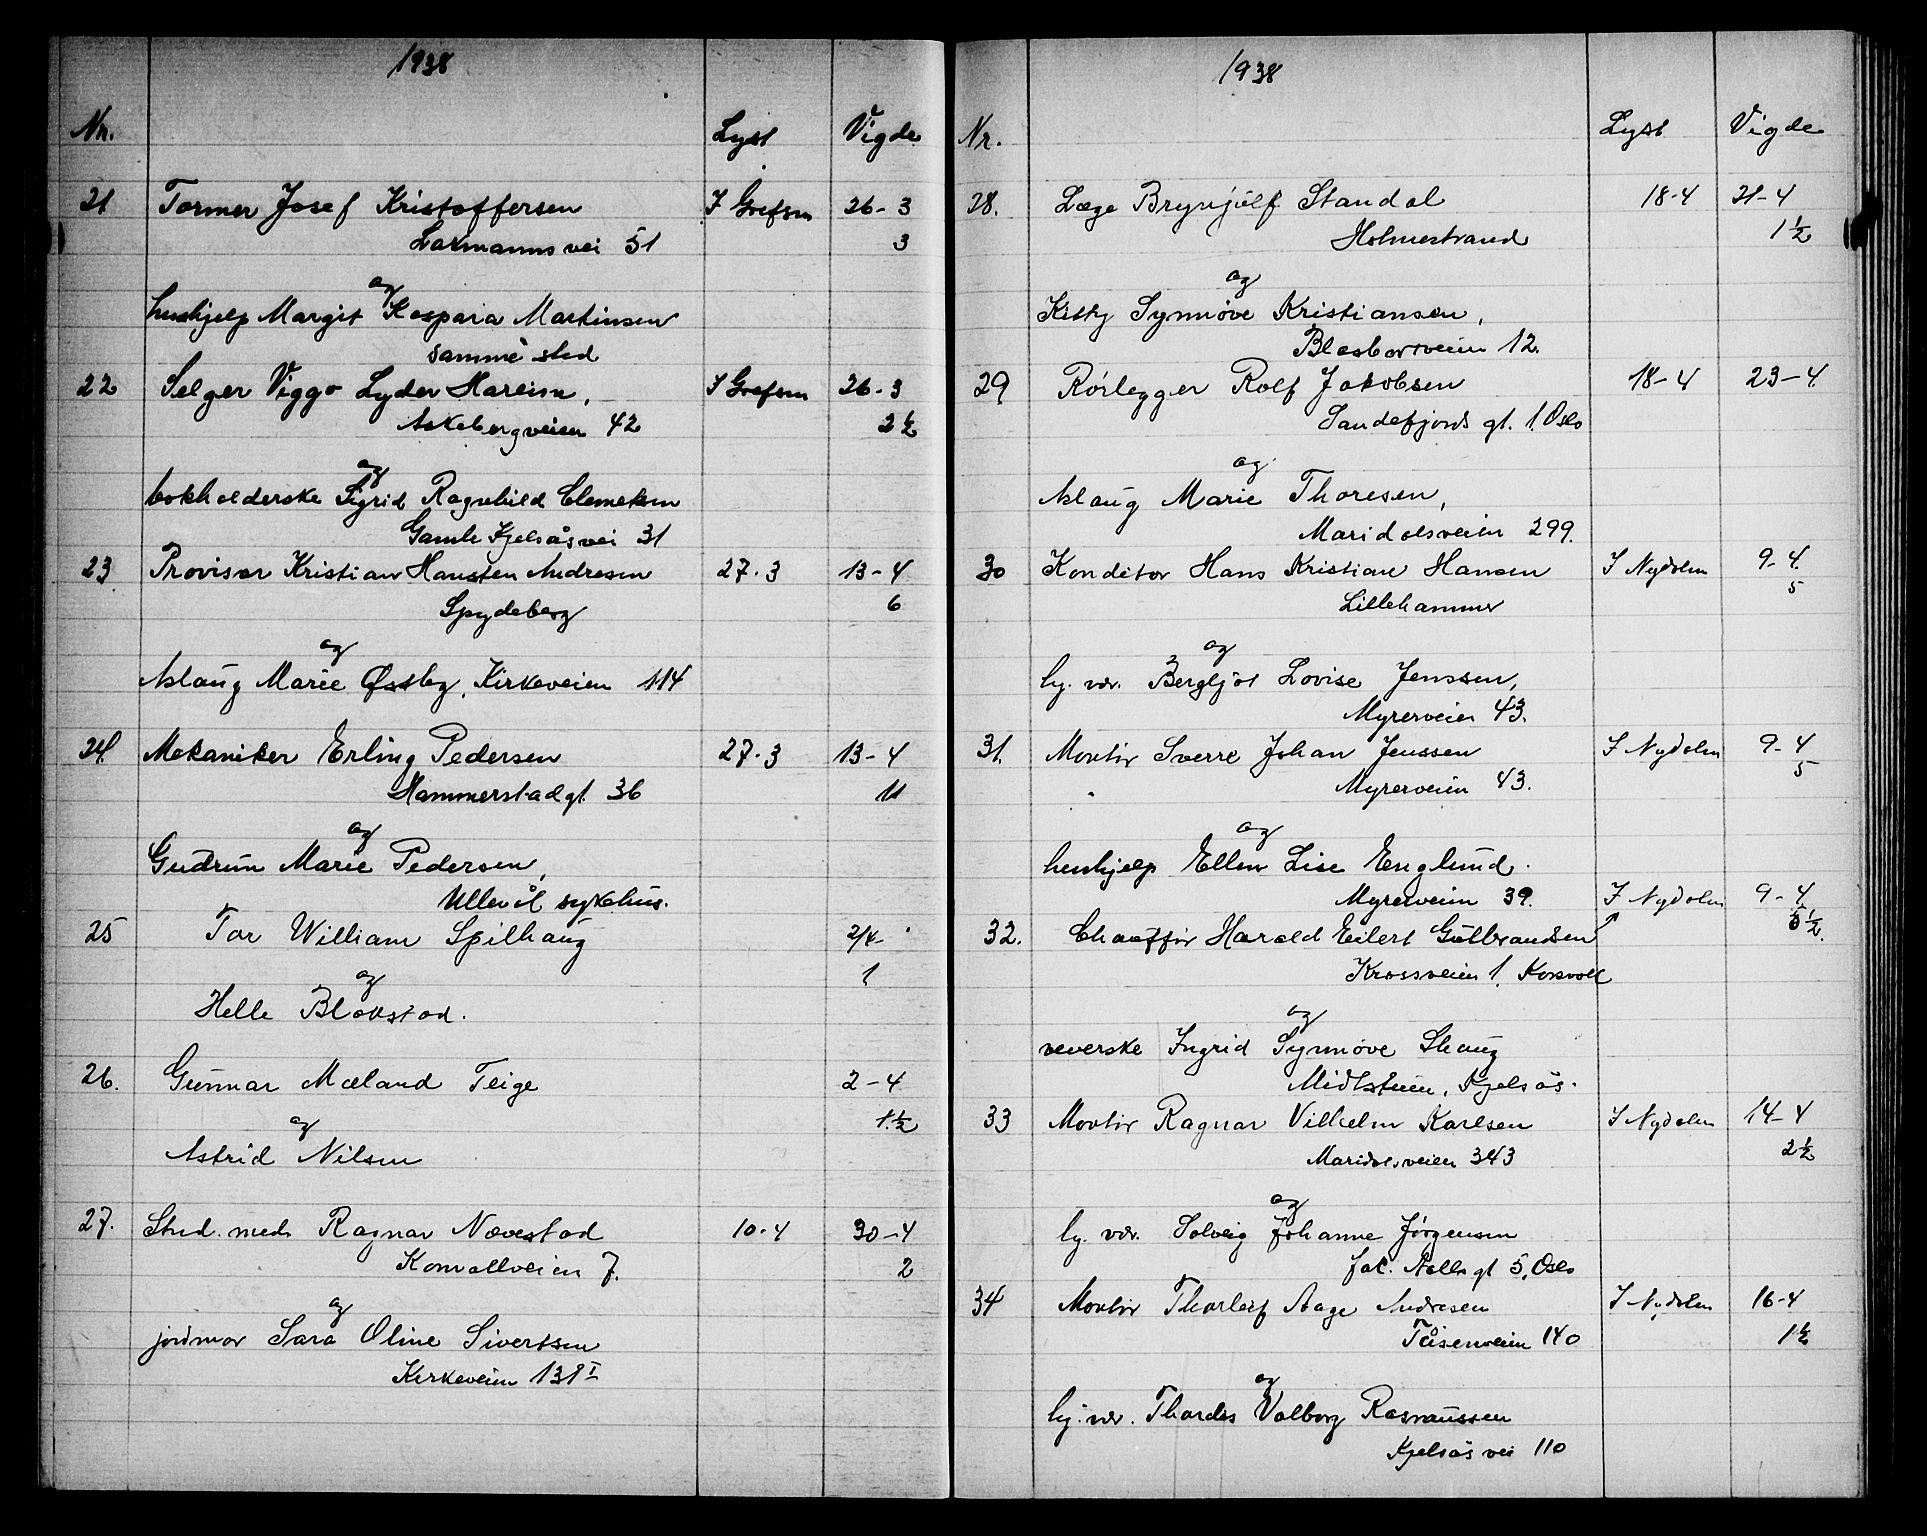 1938
Nr. Lyst Vigde
21 Former Josef Kristoffersen I Grefsen 26-3
Lakmanns vei 51 3
og
hushjelp Margit Kaspara Martinsen
samme sted
22 Selger Viggo Lyder Hareim, I Grefsen 26-3
Askebergveien 42 2½
og
bokholderske Sigrid Ragnhild Clemetsen
Gamle Kjelsåsvei 31
23 Provisor Kristian Hansten Andresen 27.3 13-4
Spydeberg 6
og
Aslaug Marie Østby, Kirkeveien 114
24. Mekaniker Erling Pedersen 27.3 13-4
Hammerstadgt. 36 11
og
Gudrun Marie Pedersen,
Ullevål sykehus.
25 Tor William Spilhaug 2/4-
og 1
Helle Blakstad.
26. Gunnar Mæland Teige 2-4
og 1.½
Astrid Nilsen
27. Stud. med. Ragnar Nævestad 10-4 30-4
Konvallveien 7. 2
og
jordmor Sara Oline Sivertsen
Kirkeveien 131 I
1938
Nr. Lyst Vigde
28. Læge Brynjulf Standal 18-4 21-4
Holmestrand 1½
og
Kitty Synnøve Kristiansen,
Blåsborveien 12.
29 Rørlegger Rolf Jakobsen 18-4 23-4.
Sandefjords gt. 1. Oslo
og
Aslaug Marie Thoresen,
Maridalsveien 299.
30 Konditor Hans Kristian Hansen I Nydalen 9-4.
Lillehammer 5
og
hj. vær. Bergljot Lovise Jenssen,
Myrerveien 43.
31. Montør Sverre Johan Jenssen I Nydalen 9-4
Myrerveien 43. 5
og
hushjelp Ellen Lise Englund.
Myrerveien 39. I Nydalen 9-4
32. Chauffør Harald Eilert Gulbrandsen 5½.
Krossveien 1, Korsvoll
og
veverske Ingrid Synnøve Skaug
Midtstuen, Kjelsås.
33 Montør Ragnar Vilhelm Karlsen I Nydalen 14-4
Maridalsveien 343 2½
og
hj. vær. Solveig Johanne Jørgensen
Jac. Aalls gt 5, Oslo
34 Montør Thorleif Aage Andresen I Nydalen 16-4
Tåsenveien 140 1½
og
hj. vær. Thordis Valborg Rasmussen
Kjelsås vei 110